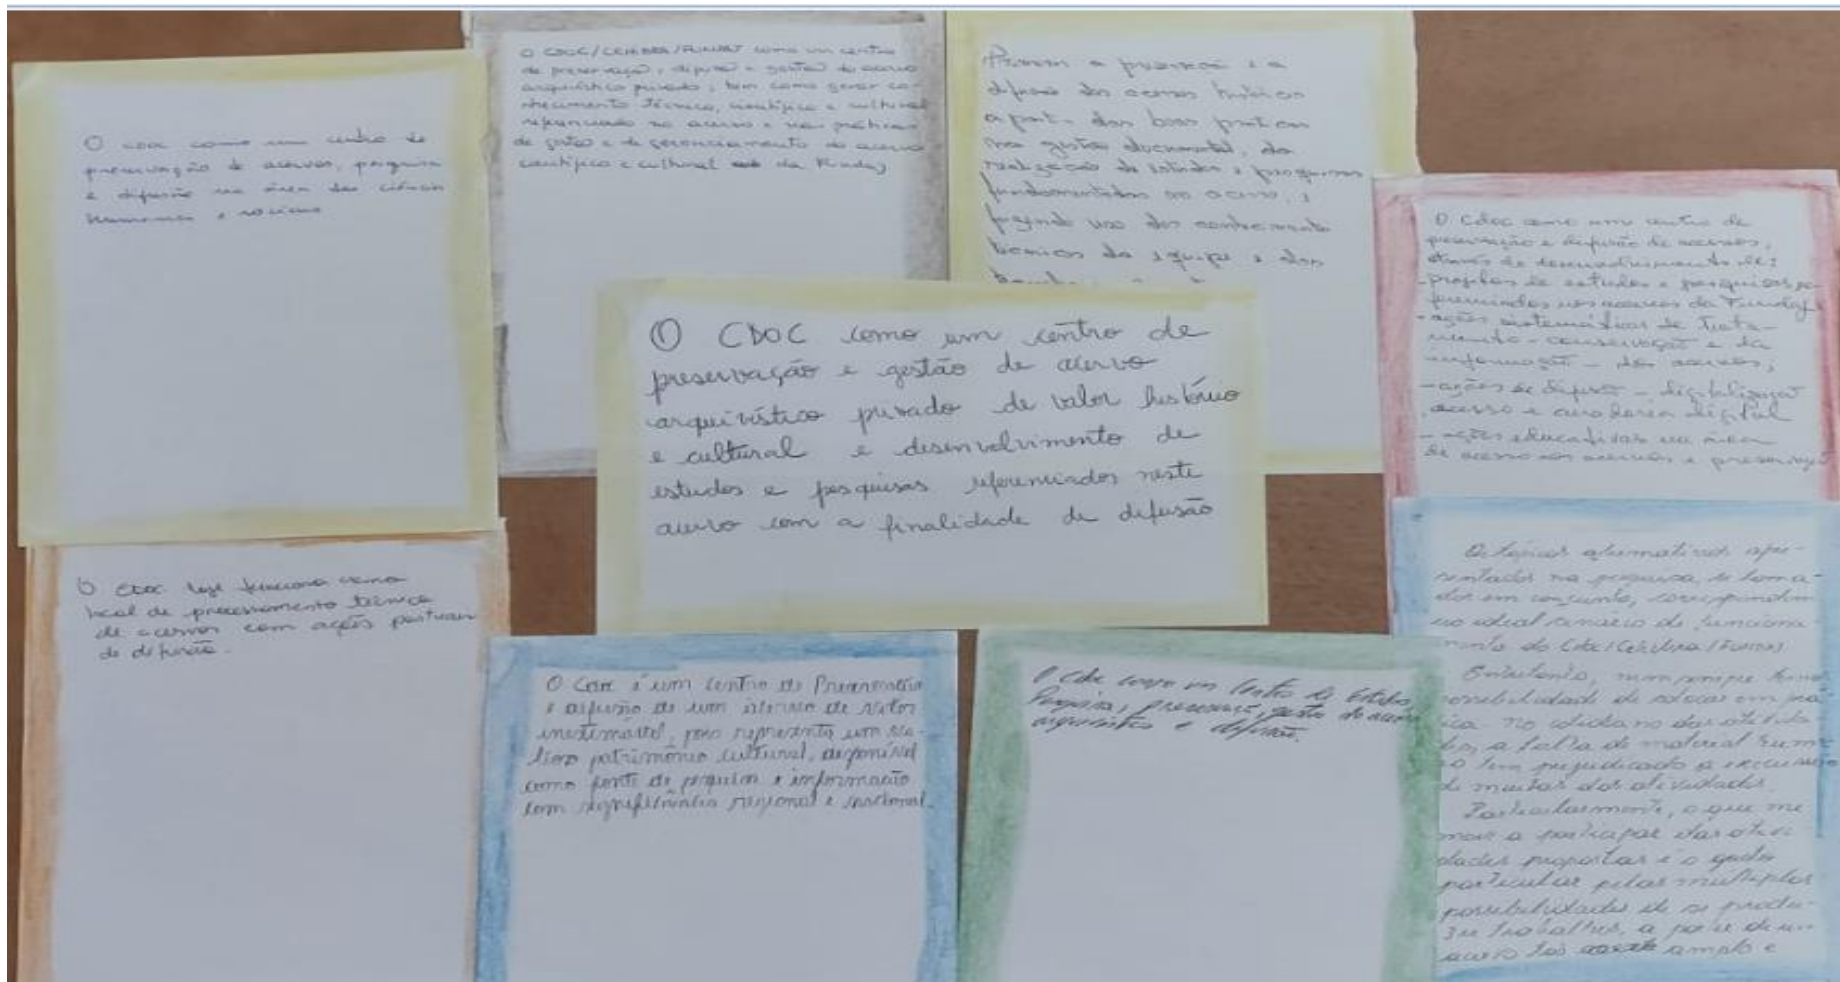 O CDOC como um centro de
preservação de acervos, pesquisa
e difusão na área das ciências
humanas e sociais
O CDOC/CEHIBRA/FUNDAJ como um centro
de preservação, difusão e gestão de acervo
arquivístico privado, bem como gerar co-
nhecimento técnico, científico e cultural
referenciado no acervo e nas práticas
de gestão e de gerenciamento do acervo
científico e cultural da Fundaj
a preservação e a
difusão dos acervos históricos
a partir das boas práticas
na gestão documental, da
realização de estudos e pesquisas
fundamentados no acervo, e
fazendo uso dos conhecimentos
técnicos da equipe e dos
O Cdoc como um centro de
preservação e difusão de acervos,
através de desenvolvimento de:
- projetos de estudos e pesquisas re-
ferenciados nos acervos da Fundaj
- ações sistemáticas de trata-
mento - conservação e da
informação - dos acervos;
- ações de difusão - digitalização
acesso e curadoria digital
- ações educativas na área
de acesso aos acervos e preservação
O CDOC como um centro de
preservação e gestão de acervo
arquivístico privado de valor histórico
e cultural e desenvolvimento de
estudos e pesquisas referenciados neste
acervo com a finalidade de difusão
O CDOC hoje funciona como
local de processamento técnico
de acervos com ações pontuais
de difusão.
O Cdoc é um Centro de Preservação
e difusão de um acervo de valor
inestimável, pois representa um va-
lioso patrimônio cultural, disponível
como fonte de pesquisa e informação
com significância regional e nacional.
O Cdoc como um Centro de Estudos
Pesquisa, preservação, gestão do acervo
arquivístico e difusão.
Os tópicos afirmativos apre-
sentados na pesquisa, se toma-
dos em conjunto, correspondem
ao ideal cenário de funciona-
mento do Cdoc/Cehibra/Fundaj.
Entretanto, nem sempre temos
possibilidade de colocar em prá-
tica. No cotidiano das ativida-
des, a falta de material huma-
no tem prejudicado a execução
de muitas das atividades.
Particularmente, o que me
move a participar das ativi-
dades propostas é o gosto
particular pelas múltiplas
possibilidades de se produ-
zir trabalhos, a partir de um
acervo tão amplo e